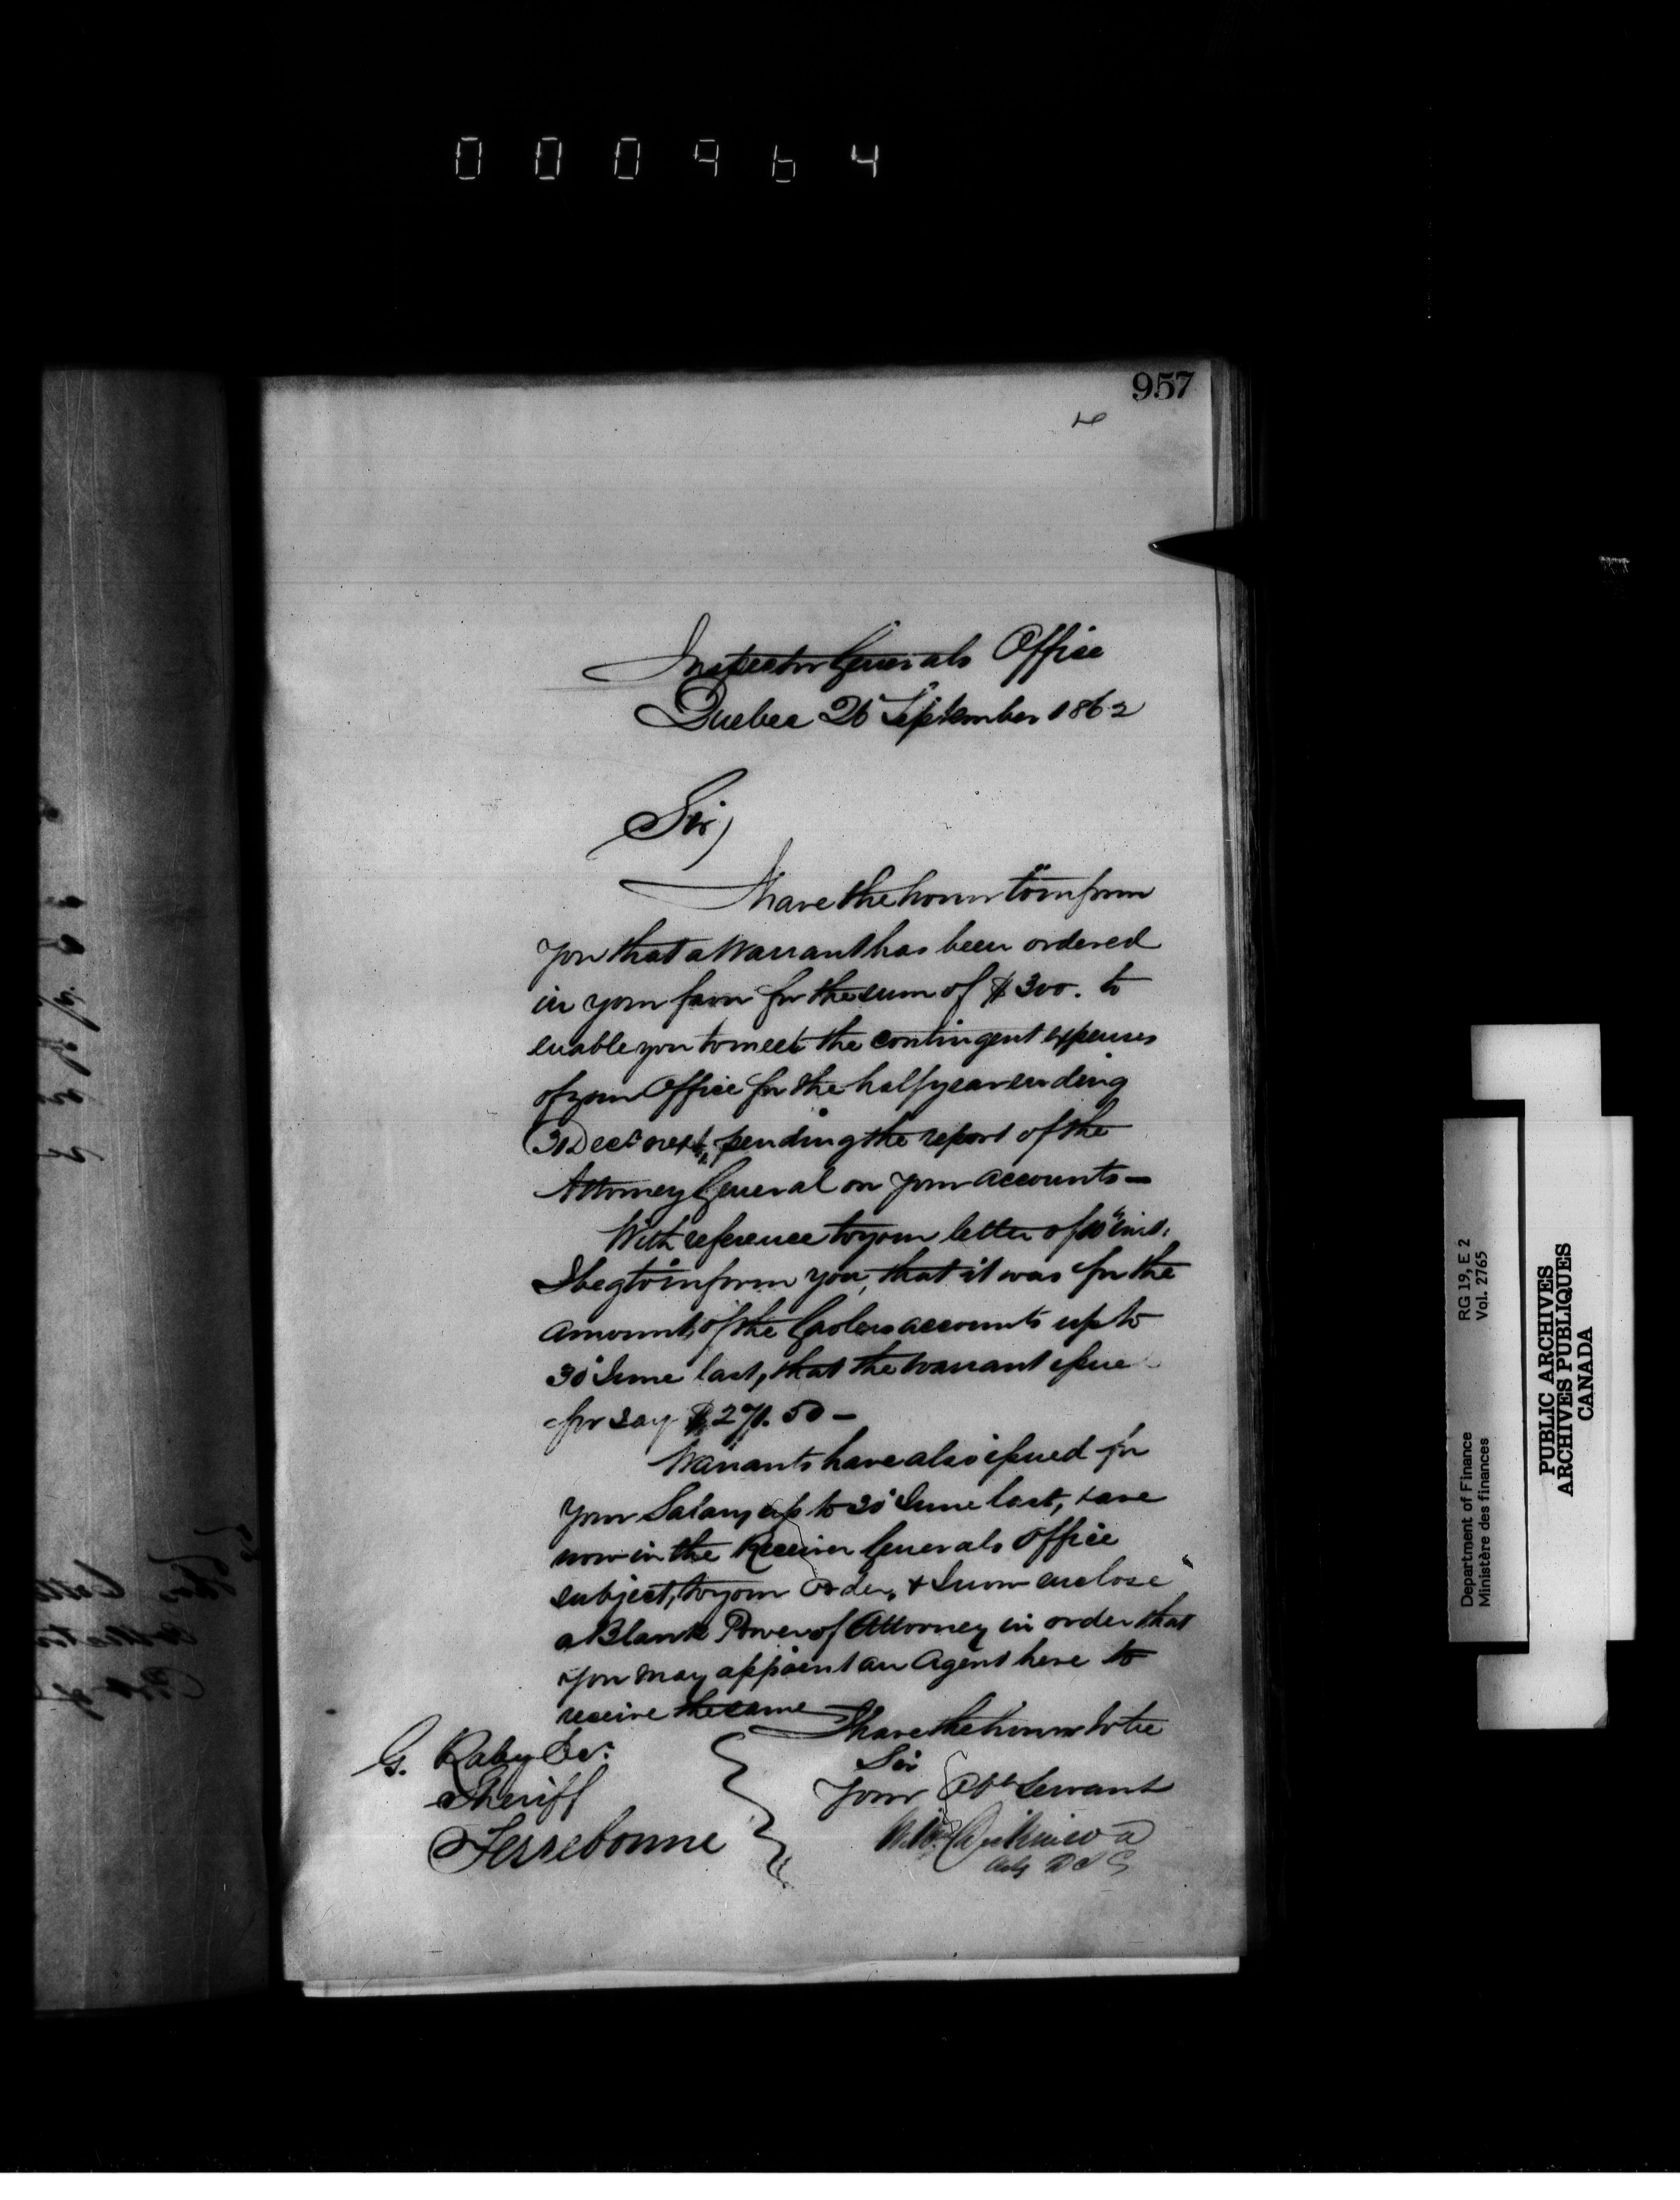 000964
957
Inspector Generals Office
Quebec 26 September 1862
Sir,
I have the honor to inform
you that a Warrant has been ordered
in your favor for the sum of $300. to
enable you to meet the contingent expenses
of your Office for the half year ending
31 Decr next, pending the report of the
Attorney General on your accounts —
With reference to your letter of inst:
I beg to inform you, that it was for the
amount, of the Gaolers accounts up to
30 June last, that the warrant issue
for say $27. 50 —
Warrants have also issued for
your Salary up to 30 June last, & are
now in the Receiver Generals Office
subject, to your Order, & I now enclose
a Blank Power of Attorney in order that
you may appoint an Agent here to
receive the same
I have the honor to be
Sir
Your Obt Servant
Dickinson
Actg D I G
G. Raby
Sheriff
Terrebonne
Department of Finance RG 19, E 2
Ministère des finances Vol. 2765
PUBLIC ARCHIVES
ARCHIVES PUBLIQUES
CANADA